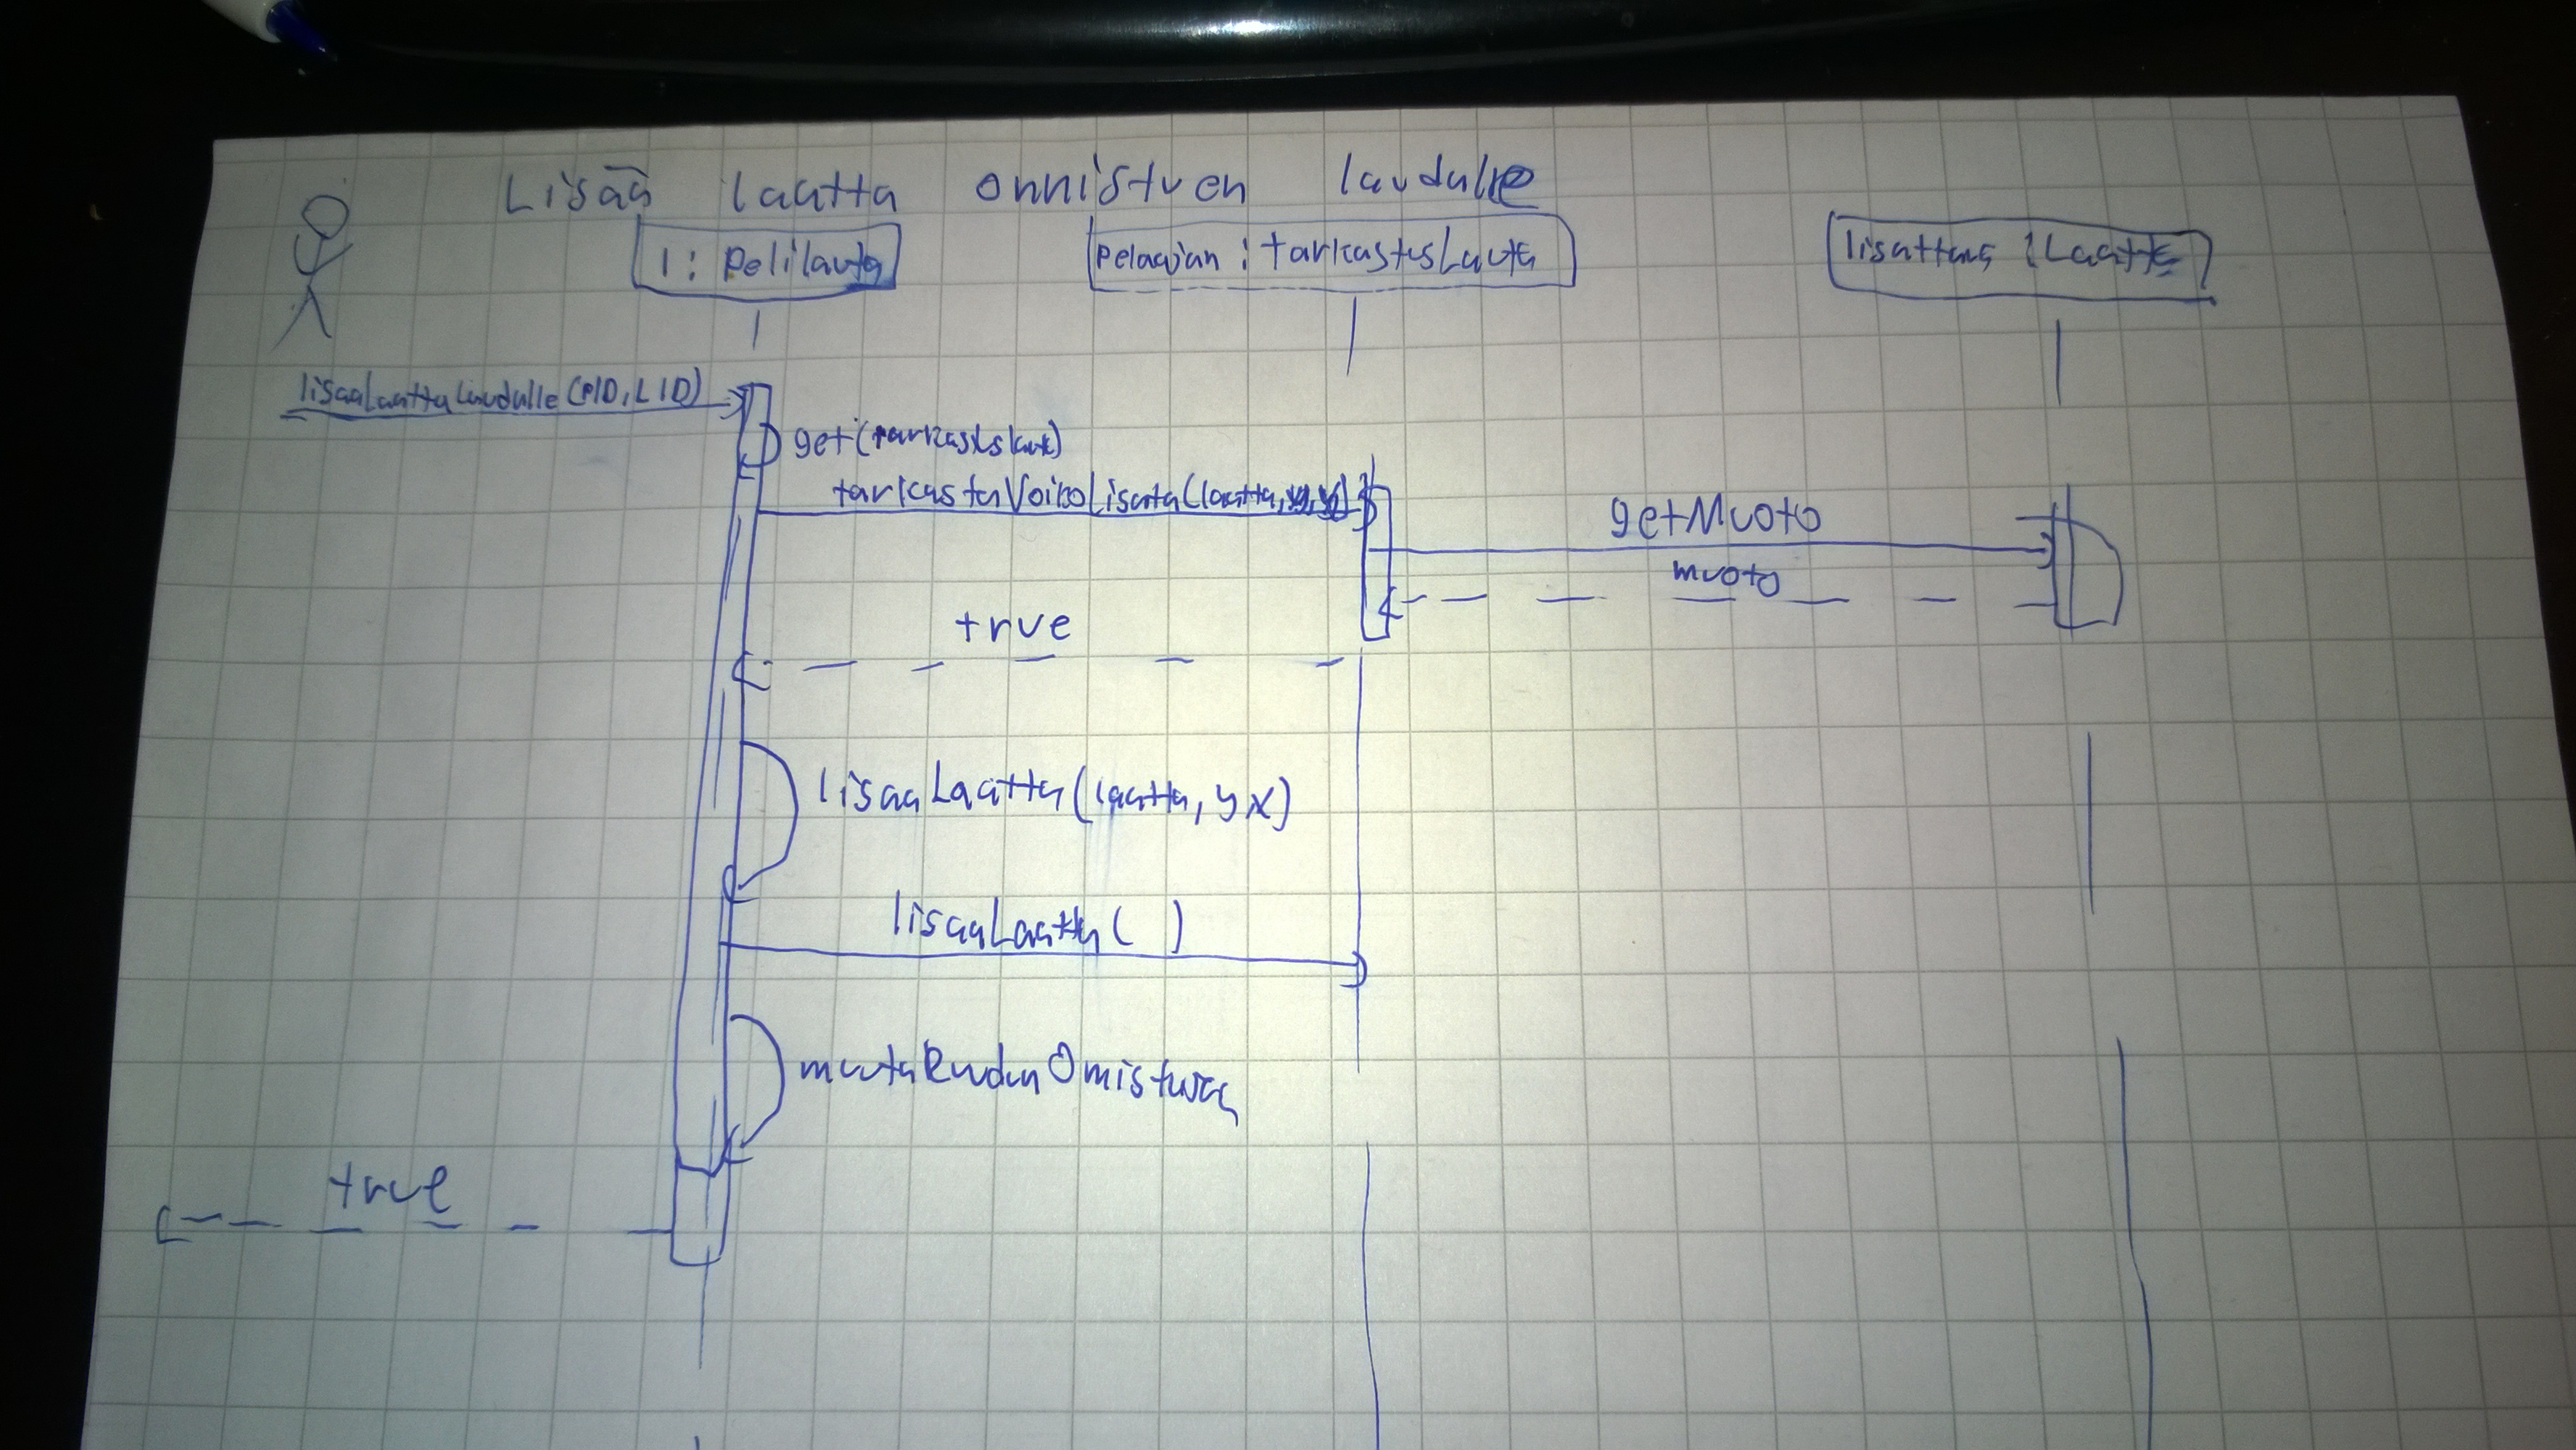 Lisää laatta onnistuen laudulle
1: Pelilauta
Pelaajan : tarkastusLauta
lisattava : Laatta
lisaaLaattaLaudalle(PID, LID)
get(tarkastuslauta)
tarkastaVoikoLisata(laatta,
getMuoto
muoto
true
lisaaLaatta(laatta, y x)
lisaaLaatta( )
muutaRuudunOmistusta
true